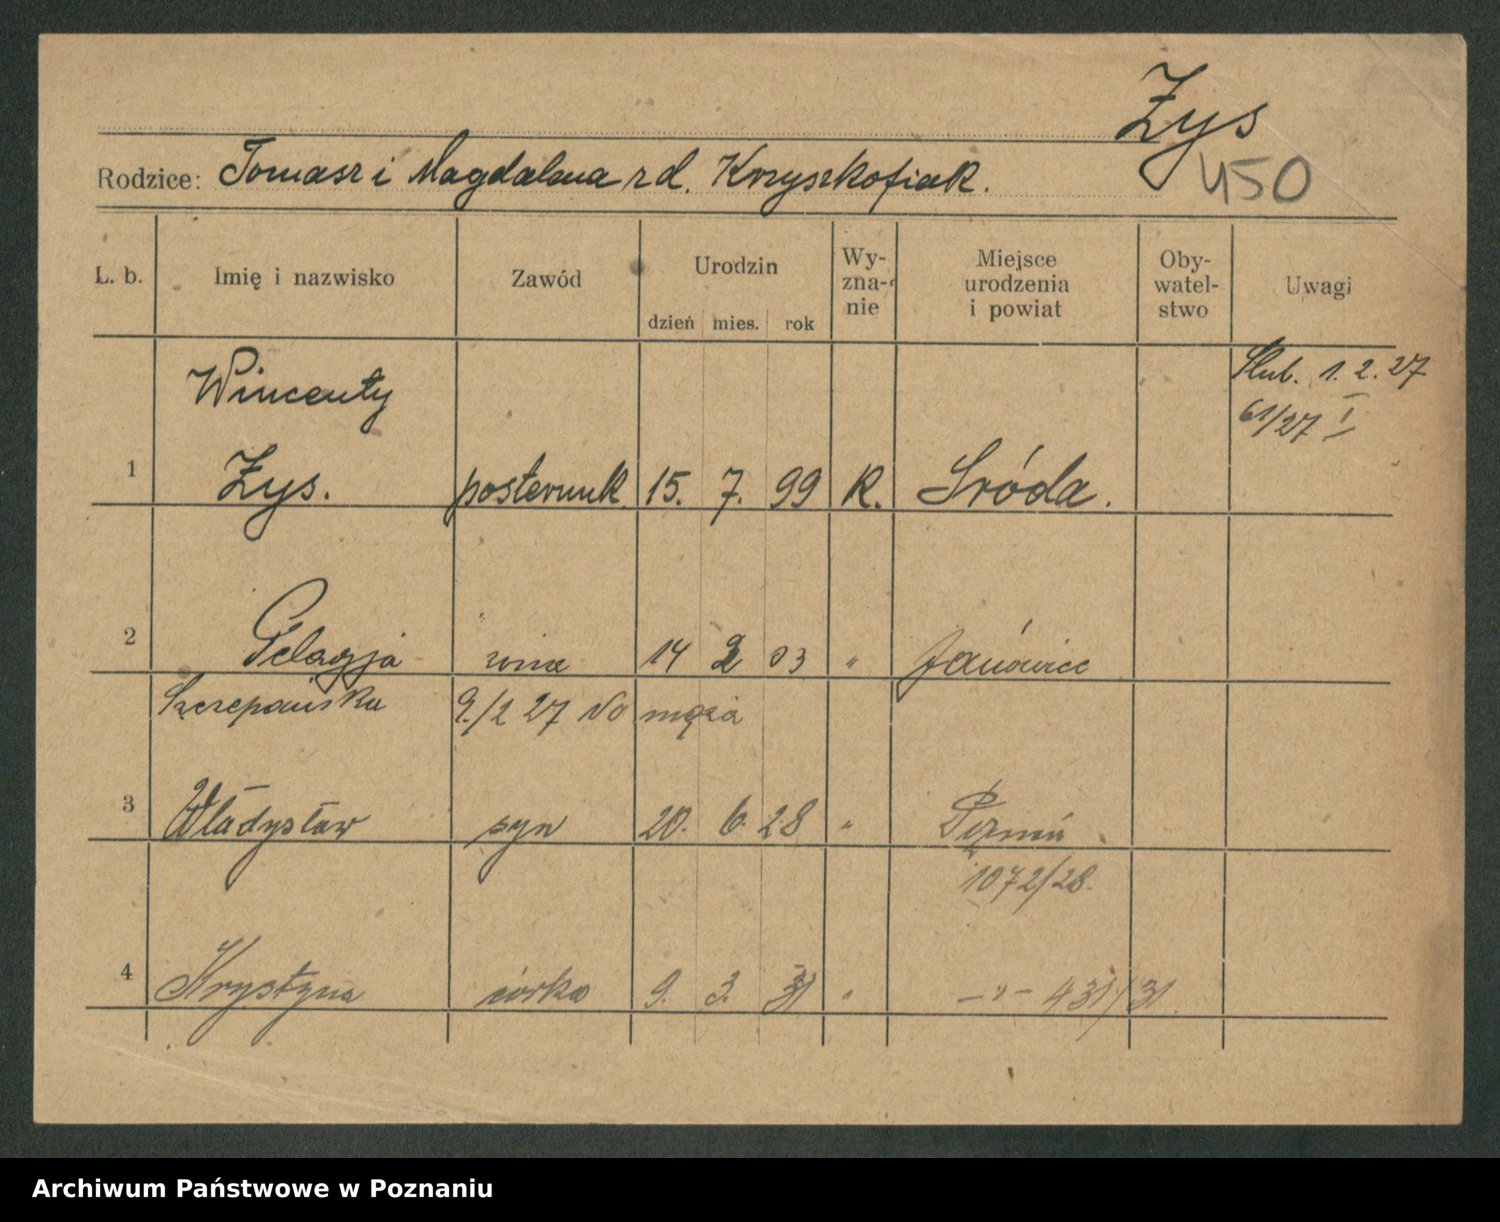 Zys
450
Rodzice: Tomasz i Magdalena zd. Krzyszkofiak.
L. b. Imię i nazwisko Zawód Urodzin dzień mies. rok Wy-zna-nie Miejsce urodzenia i powiat Oby-watel-stwo Uwagi
Ślub. 1. 2. 27
61/27 I
Wincenty
1 Zys. posterunk. 15. 7. 99 R. Sróda.
2 Pelagja żona 14 2 03 " Janówiec
Szczepańska 9./2 27 do męża
3 Władysław syn 20. 6. 28 " Poznań
1072/28.
4 Krystyna córka 9. 3. 31 " —"— 431/31
Archiwum Państwowe w Poznaniu